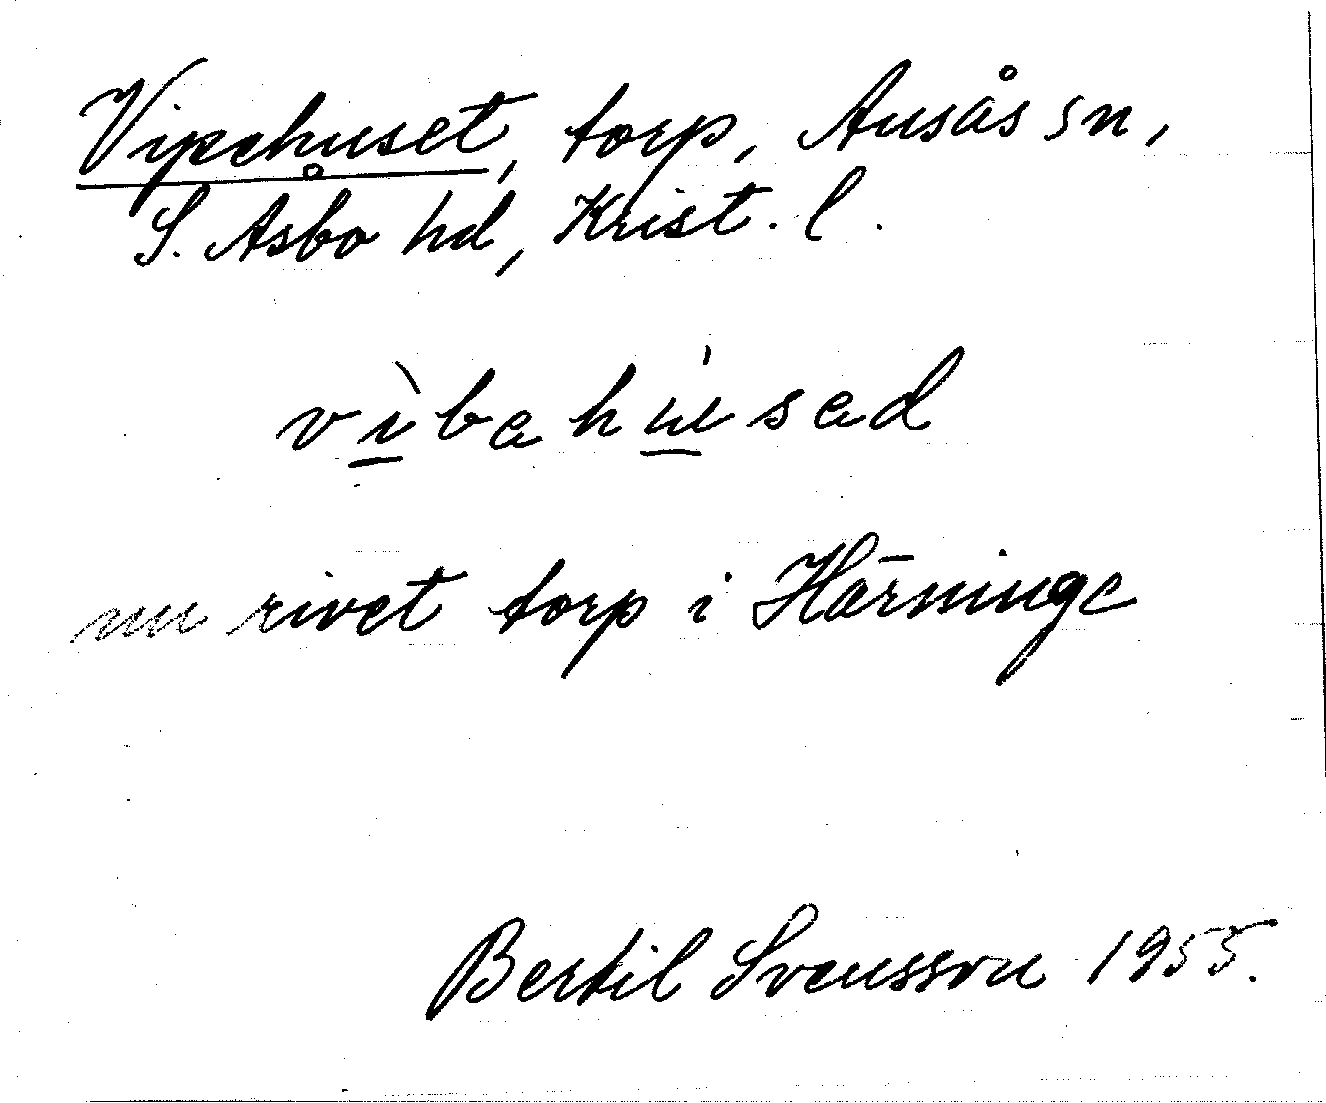 Vipehuset, torp, Ausås sn,
S. Åsbo hd, Krist. l.
vìbahúsad
nu rivet torp i Härninge
Bertil Svensson 1955.